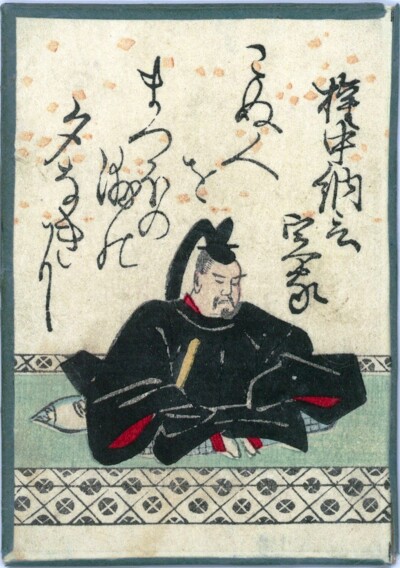 権中納言
定家
こぬ人
を
まつほの
浦の
夕なきに